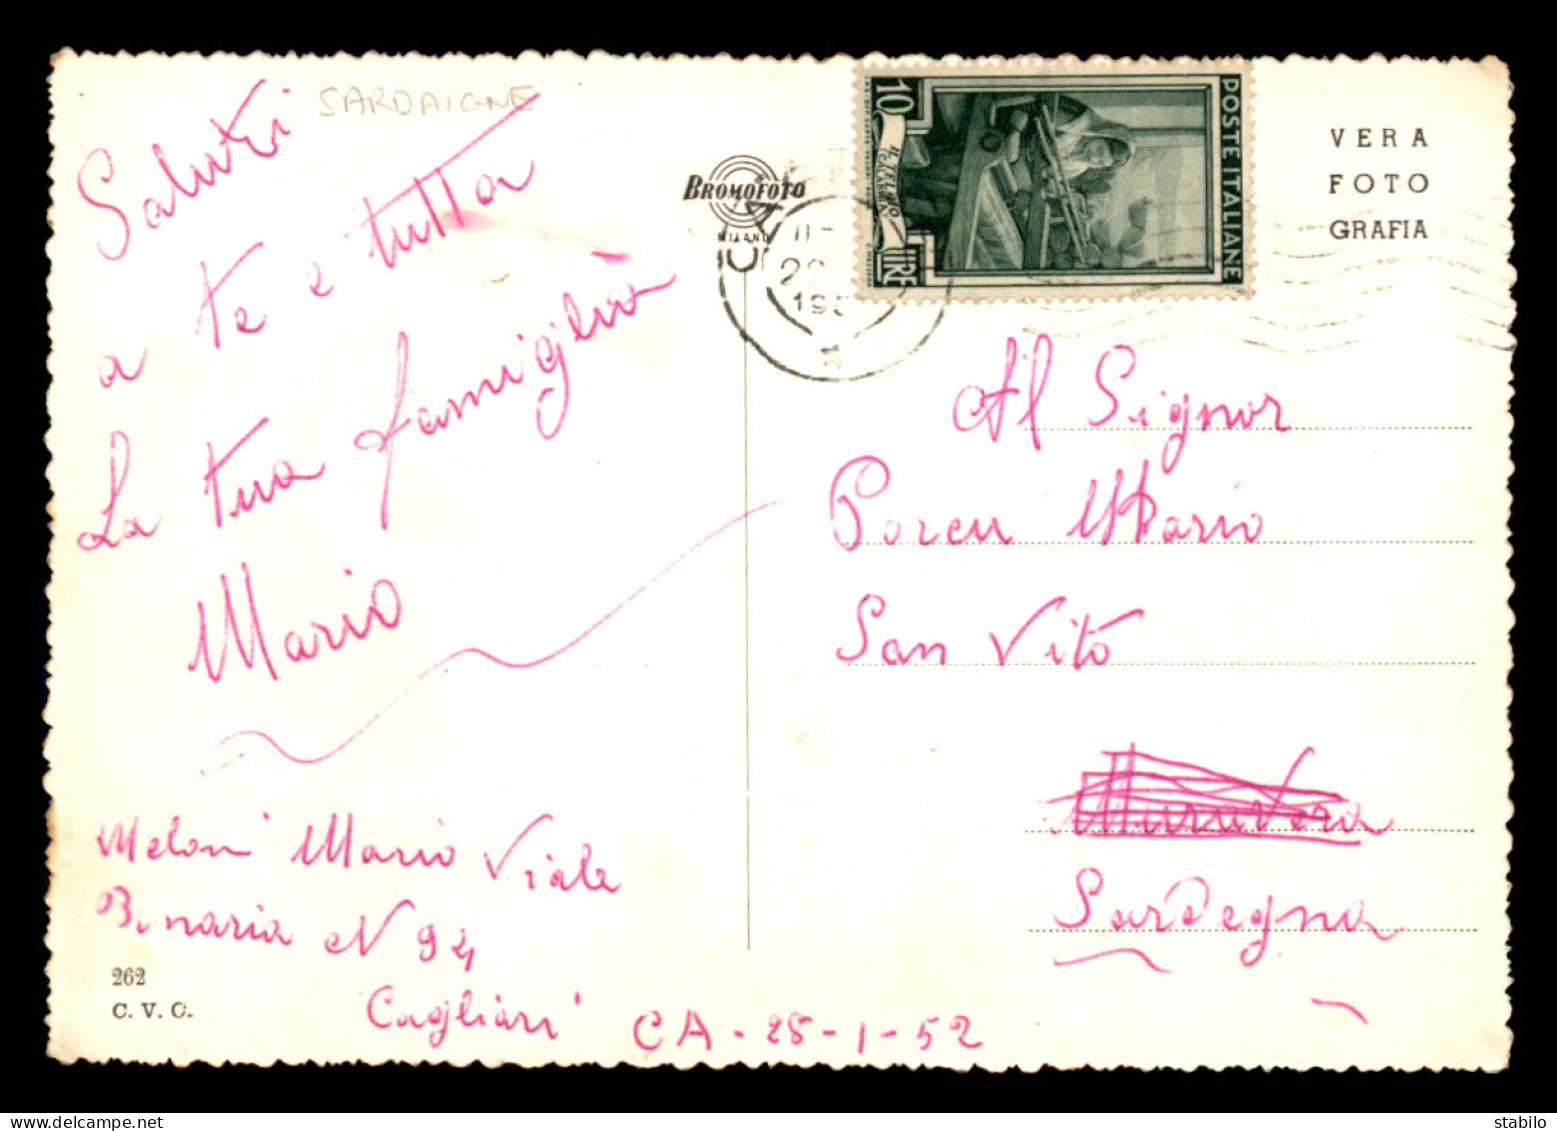 SARDAIGNE
Saluti
a te e tutta
La tua famiglia
Mario
Meloni Mario Viale
Bonaria N 94
Cagliari CA - 28-1-52
262
C. V. C.
BROMOFOTO
MILANO
10
POSTE ITALIANE
LIRE
VERA
FOTO
GRAFIA
Al Signor
Porcu Mario
San Vito
Muravera
Sardegna
stabilo